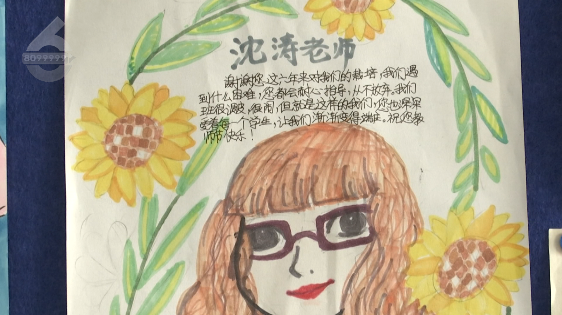 80999999
沈涛老师
谢谢您,这六年来对我们的栽培,我们遇
到什么困难,您都会耐心指导,从不放弃,我们
班很调皮,很闹,但就是这样的我们,您也深深
爱着每一个学生,让我们渐渐变得端正,祝您教
师节快乐!